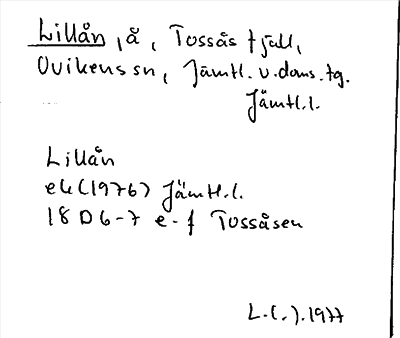 Lillån, å, Tossås fjäll,
Ovikens sn, Jämtl. v. doms. tg.
Jämtl.l.
Lillån
ek (1976) Jämtl.l.
18 D 6-7 e-f Tossåsen
L.(.).1977